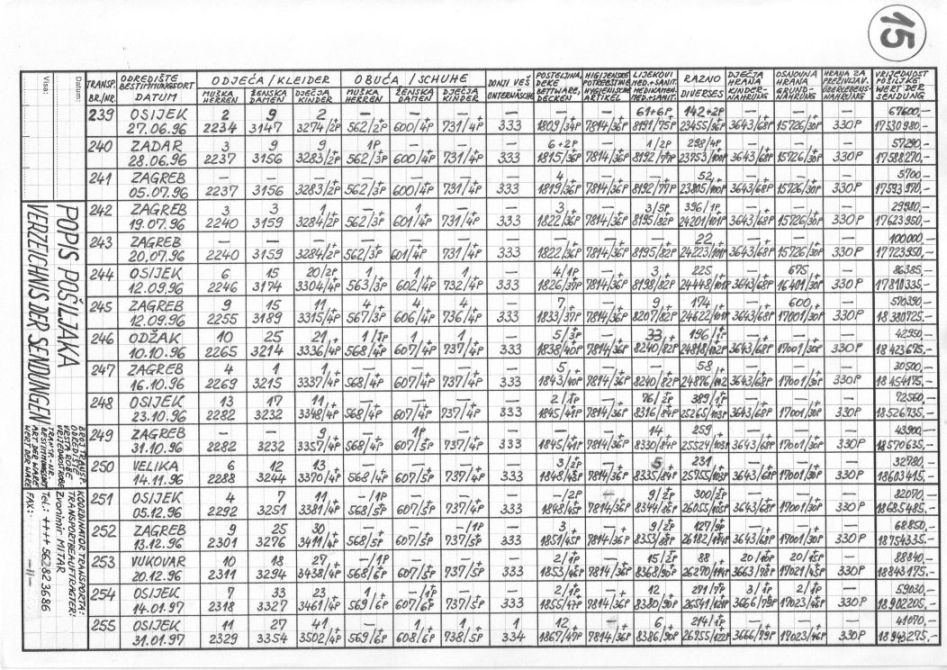 15
TRANSP. BR./NR. ODREDIŠTE BESTIMMUNGSORT DATUM ODJEĆA / KLEIDER OBUĆA / SCHUHE DONJI VEŠ UNTERWÄSCHE POSTELJINA, DEKE BETTWARE, DECKEN HIGIJENSKE POTREPŠTINE HYGIENISCHE ARTIKEL LIJEKOVI MED.+SANIT. MEDIKAMEN. MED.+SANIT. RAZNO DIVERSES DJEČJA HRANA KINDER-NAHRUNG OSNOVNA HRANA GRUND-NAHRUNG HRANA ZA PREŽIVLJAV. ÜBERLEBENS-NAHRUNG VRIJEDNOST POŠILJKE WERT DER SENDUNG
MUŠKA HERREN ŽENSKA DAMEN DJEČJA KINDER MUŠKA HERREN ŽENSKA DAMEN DJEČJA KINDER
239 OSIJEK 2 9 2 — — — — — — 61+6P 142+2P — — — 67600,-
27.06.96 2234 3147 3274/2P 562/2P 600/4P 731/4P 333 1809/34P 7814/36P 8191/75P 3643/68P 15726/30P 330P 17530980,-
240 ZADAR 3 9 9 1P — — — 6+2P — 1/2P 298/4P — — — 57290,-
28.06.96 2237 3156 3283/2P 562/3P 600/4P 731/4P 333 1815/36P 7814/36P 8192/77P 3643/68P 15726/30P 330P 17588270,-
241 ZAGREB — — — — — — — 4 — — 52 — — — 5700,-
05.07.96 2237 3156 3283/2P 562/3P 600/4P 731/4P 333 1819/36P 7814/36P 8192/77P 3643/68P 15726/30P 330P 17593970,-
242 ZAGREB 3 3 1 — 1 — — 3 — 3/5P 396/1P — — — 29980,-
19.07.96 2240 3159 3284/2P 562/3P 601/4P 731/4P 333 1822/36P 7814/36P 8195/82P 3643/68P 15726/30P 330P 17623950,-
243 ZAGREB — — — — — — — — — — 22 — — — 100000,-
20.07.96 2240 3159 3284/2P 562/3P 601/4P 731/4P 333 1822/36P 7814/36P 8195/82P 3643/68P 15726/30P 330P 17723950,-
244 OSIJEK 6 15 20/2P 1 1 1 — 4/1P — 3 225 — 675 — 86385,-
12.09.96 2246 3174 3304/4P 563/3P 602/4P 732/4P 333 1826/37P 7814/36P 8198/82P 3643/68P 16401/30P 330P 17810335,-
245 ZAGREB 9 15 11 4 4 4 — 7 — 9 174 — 600 — 570390,-
12.09.96 2255 3189 3315/4P 567/3P 606/4P 736/4P 333 1833/37P 7814/36P 8207/82P 3643/68P 17001/30P 330P 18380725,-
246 ODŽAK 10 25 21 1/1P 1 1 — 5/3P — 33 196/1P — — — 42950,-
10.10.96 2265 3214 3336/4P 568/4P 607/4P 737/4P 333 1838/40P 7814/36P 8240/82P 3643/68P 17001/30P 330P 18423675,-
247 ZAGREB 4 1 1 — — — — 5 — — 58 — — — 30500,-
16.10.96 2269 3215 3337/4P 568/4P 607/4P 737/4P 333 1843/40P 7814/36P 8240/82P 3643/68P 17001/30P 330P 18454175,-
248 OSIJEK 13 17 11 — — — — 2/1P — 76/2P 389/1P — — — 72560,-
23.10.96 2282 3232 3348/4P 568/4P 607/4P 737/4P 333 1845/41P 7814/36P 8316/84P 3643/68P 17001/30P 330P 18526735,-
249 ZAGREB — — 9 — 1P — — — — 14 259 — — — 43900,-
31.10.96 2282 3232 3357/4P 568/4P 607/5P 737/4P 333 1845/41P 7814/36P 8330/84P 3643/68P 17001/30P 330P 18570635,-
250 VELIKA 6 12 13 — — — — 3/2P — 5 231 — — — 32780,-
14.11.96 2288 3244 3370/4P 568/4P 607/5P 737/4P 333 1848/43P 7814/36P 8335/84P 3643/68P 17001/30P 330P 18603415,-
251 OSIJEK 4 7 11 -/1P — — — -/2P — 9/2P 300/2P — — — 82070,-
05.12.96 2292 3251 3381/4P 568/5P 607/5P 737/4P 333 1848/45P 7814/36P 8344/86P 3643/68P 17001/30P 330P 18685485,-
252 ZAGREB 9 25 30 — — -/1P — 3 — 9/2P 127/9P — — — 68850,-
13.12.96 2301 3276 3411/4P 568/5P 607/5P 737/5P 333 1851/45P 7814/36P 8353/88P 3643/68P 17001/30P 330P 18754335,-
253 VUKOVAR 10 18 27 -/1P — — — 2/1P — 15/2P 88 20/10P 20/15P — 88840,-
20.12.96 2311 3294 3438/4P 568/6P 607/5P 737/5P 333 1853/46P 7814/36P 8368/90P 3663/78P 17021/45P 330P 18843175,-
254 OSIJEK 7 33 23 1 -/1P — — 2/1P — 12 271/7P 3/1P 2/1P — 59030,-
14.01.97 2318 3327 3461/4P 569/6P 607/6P 737/5P 333 1855/47P 7814/36P 8380/90P 3666/79P 17023/46P 330P 18902205,-
255 OSIJEK 11 27 41 — 1 1 1 12 — 6 214/1P — — — 41070,-
31.01.97 2329 3354 3502/4P 569/6P 608/6P 738/5P 334 1867/47P 7814/36P 8386/90P 3666/79P 17023/46P 330P 18943275,-
POPIS POŠILJAKA
VERZEICHNIS DER SENDUNGEN
BROJ TRANSP.
ODREDIŠTE
VRSTA ROBE
VRIJEDNOST ROBE
TRANSP.-NR.
BESTIMMUNGSORT
ART DER WARE
WERT DER WARE
KOORDINATOR TRANSPORTA:
TRANSPORTBEAUFTRAGTER:
Zvonimir MITAR
Tel.: +++ 562823686
FAX: -11-
Datum:
Visa: